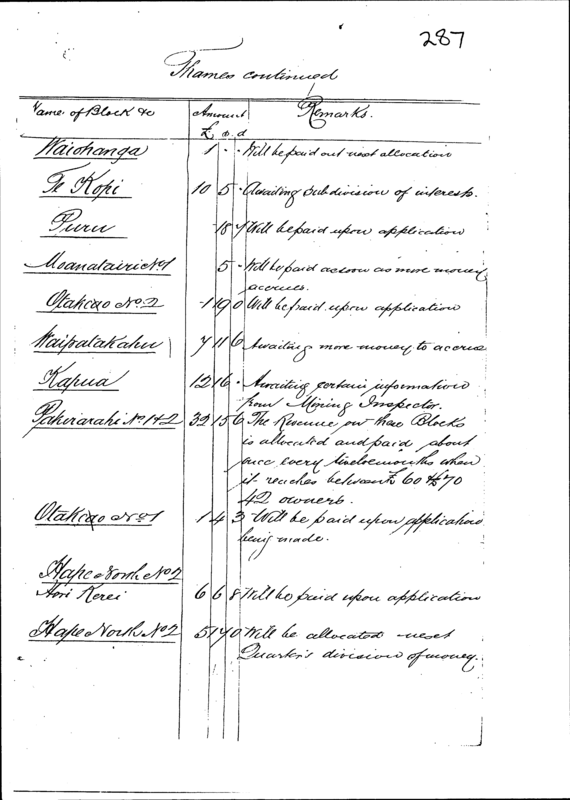 287
Thames continued
Name of Block &c Amount Remarks.
£ s. d
Waiohanga 1 - - Will be paid out next allocation
Te Kopi 10 5 - Awaiting subdivision of interests.
Puru - 18 7 Will be paid upon application
Moanatairi No 1 5 - Will be paid as soon as more money
accrues.
Otakiao No. 2 - 19 0 Will be paid upon application
Waipatakahu 7 11 6 Awaiting more money to accrue
Kapua 12 16 - Awaiting certain information
from Mining Inspector.
Pakirarahi No 1 & 2 32 15 6 The Revenue on these Blocks
is allocated and paid about
once every twelve months when
it reaches between £60 & 70
42 owners.
Otakiao No 1 1 4 3 Will be paid upon application
being made.
Hape North No 2
Hori Kerei 6 6 8 Will be paid upon application
Hape North No 2 5 17 0 Will be allocated next
Quarter's division of money.